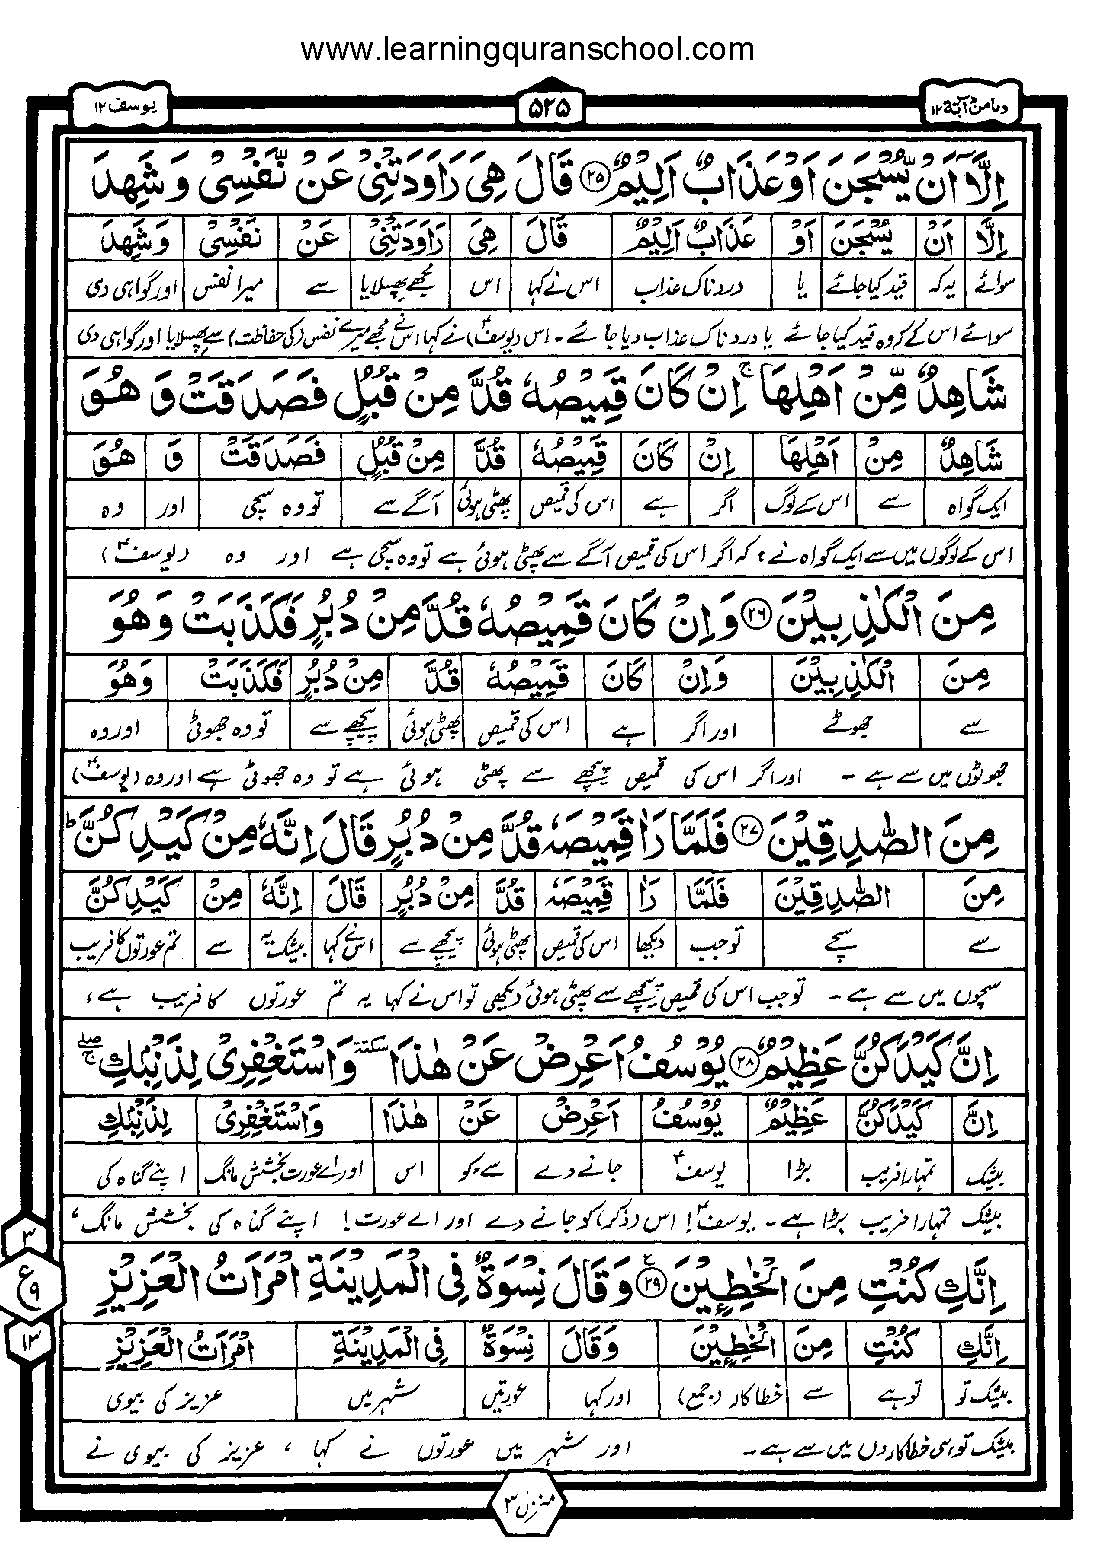 www.learningquranschool.com
وما من دآبة ۱۲
۵۲۵
یوسف ۱۲
اِلَّاۤ اَنْ یُّسْجَنَ اَوْ عَذَابٌ اَلِیْمٌ ﴿۲۵﴾ قَالَ هِیَ رَاوَدَتْنِیْ عَنْ نَّفْسِیْ وَ شَهِدَ
اِلَّا اَنْ یُّسْجَنَ اَوْ عَذَابٌ اَلِیْمٌ قَالَ هِیَ رَاوَدَتْنِیْ عَنْ نَفْسِیْ وَ شَهِدَ
سوائے یہ کہ قید کیا جائے یا دردناک عذاب اس نے کہا اس مجھے پھسلایا سے میرا نفس اور گواہی دی
سوائے اس کے کہ وہ قید کیا جائے یا دردناک عذاب دیا جائے۔ اس (یوسفؑ) نے کہا اس نے مجھے میرے نفس (کی حفاظت) سے پھسلایا اور گواہی دی
شَاهِدٌ مِّنْ اَهْلِهَا ۚ اِنْ كَانَ قَمِیْصُهٗ قُدَّ مِنْ قُبُلٍ فَصَدَقَتْ وَ هُوَ
شَاهِدٌ مِنْ اَهْلِهَا اِنْ كَانَ قَمِیْصُهٗ قُدَّ مِنْ قُبُلٍ فَصَدَقَتْ وَ هُوَ
ایک گواہ سے اس کے لوگ اگر ہے اس کی قمیص پھٹی ہوئی آگے سے تو وہ سچی اور وہ
اس کے لوگوں میں سے ایک گواہ نے ؛ کہ اگر اس کی قمیص آگے سے پھٹی ہوئی ہے تو وہ سچی ہے اور وہ (یوسفؑ)
مِنَ الْكٰذِبِیْنَ ﴿۲۶﴾ وَ اِنْ كَانَ قَمِیْصُهٗ قُدَّ مِنْ دُبُرٍ فَكَذَبَتْ وَ هُوَ
مِنَ الْكٰذِبِیْنَ وَ اِنْ كَانَ قَمِیْصُهٗ قُدَّ مِنْ دُبُرٍ فَكَذَبَتْ وَ هُوَ
سے جھوٹے اور اگر ہے اس کی قمیص پھٹی ہوئی پیچھے سے تو وہ جھوٹی اور وہ
جھوٹوں میں سے ہے۔ اور اگر اس کی قمیص پیچھے سے پھٹی ہوئی ہے تو وہ جھوٹی ہے اور وہ (یوسفؑ)
مِنَ الصّٰدِقِیْنَ ﴿۲۷﴾ فَلَمَّا رَاٰ قَمِیْصَهٗ قُدَّ مِنْ دُبُرٍ قَالَ اِنَّهٗ مِنْ كَیْدِكُنَّ ؕ
مِنَ الصّٰدِقِیْنَ فَلَمَّا رَاٰ قَمِیْصَهٗ قُدَّ مِنْ دُبُرٍ قَالَ اِنَّهٗ مِنْ كَیْدِكُنَّ
سے سچے تو جب دیکھا اس کی قمیص پھٹی ہوئی پیچھے سے اس نے کہا بیشک یہ سے تم عورتوں کا فریب
سچوں میں سے ہے۔ تو جب اس کی قمیص پیچھے سے پھٹی ہوئی دیکھی تو اس نے کہا یہ تم عورتوں کا فریب ہے ؛
اِنَّ كَیْدَكُنَّ عَظِیْمٌ ﴿۲۸﴾ یُوْسُفُ اَعْرِضْ عَنْ هٰذَا سكتة وَ اسْتَغْفِرِیْ لِذَنْۢبِكِ ۚۖ
اِنَّ كَیْدَكُنَّ عَظِیْمٌ یُوْسُفُ اَعْرِضْ عَنْ هٰذَا وَ اسْتَغْفِرِیْ لِذَنْۢبِكِ
بیشک تمہارا فریب بڑا یوسفؑ جانے دے سے۔ کو اس اور اے عورت بخشش مانگ اپنے گناہ کی
بیشک تمہارا فریب بڑا ہے۔ یوسفؑ! اس (ذکر) کو جانے دے اور اے عورت! اپنے گناہ کی بخشش مانگ ،
اِنَّكِ كُنْتِ مِنَ الْخٰطِـِٕیْنَ ﴿۲۹﴾ وَ قَالَ نِسْوَةٌ فِی الْمَدِیْنَةِ امْرَاَتُ الْعَزِیْزِ
اِنَّكِ كُنْتِ مِنَ الْخٰطِـِٕیْنَ وَ قَالَ نِسْوَةٌ فِی الْمَدِیْنَةِ امْرَاَتُ الْعَزِیْزِ
بیشک تو تو ہے سے خطا کار (جمع) اور کہا عورتیں شہر میں عزیز کی بیوی
بیشک تو ہی خطا کاروں میں سے ہے۔ اور شہر میں عورتوں نے کہا ، عزیز کی بیوی نے
۳
ع ۹
۱۳
منزل ۳